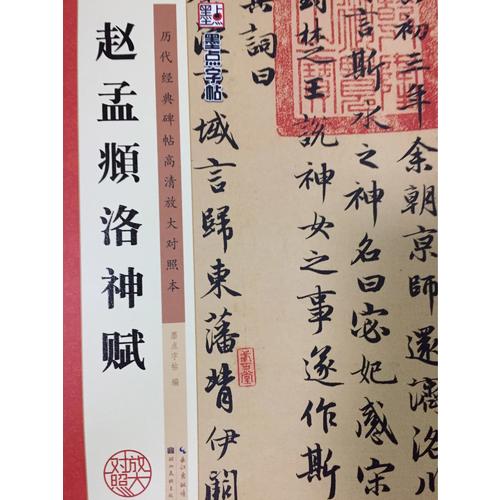 赵孟頫洛神赋
历代经典碑帖高清放大对照本
墨点字帖 编
放大对照
墨点
墨点字帖
初三年余朝京師還濟洛川
言斯水之神名曰宓妃感宋
對楚王說神女之事遂作斯
其詞曰
京域言歸東藩背伊闕